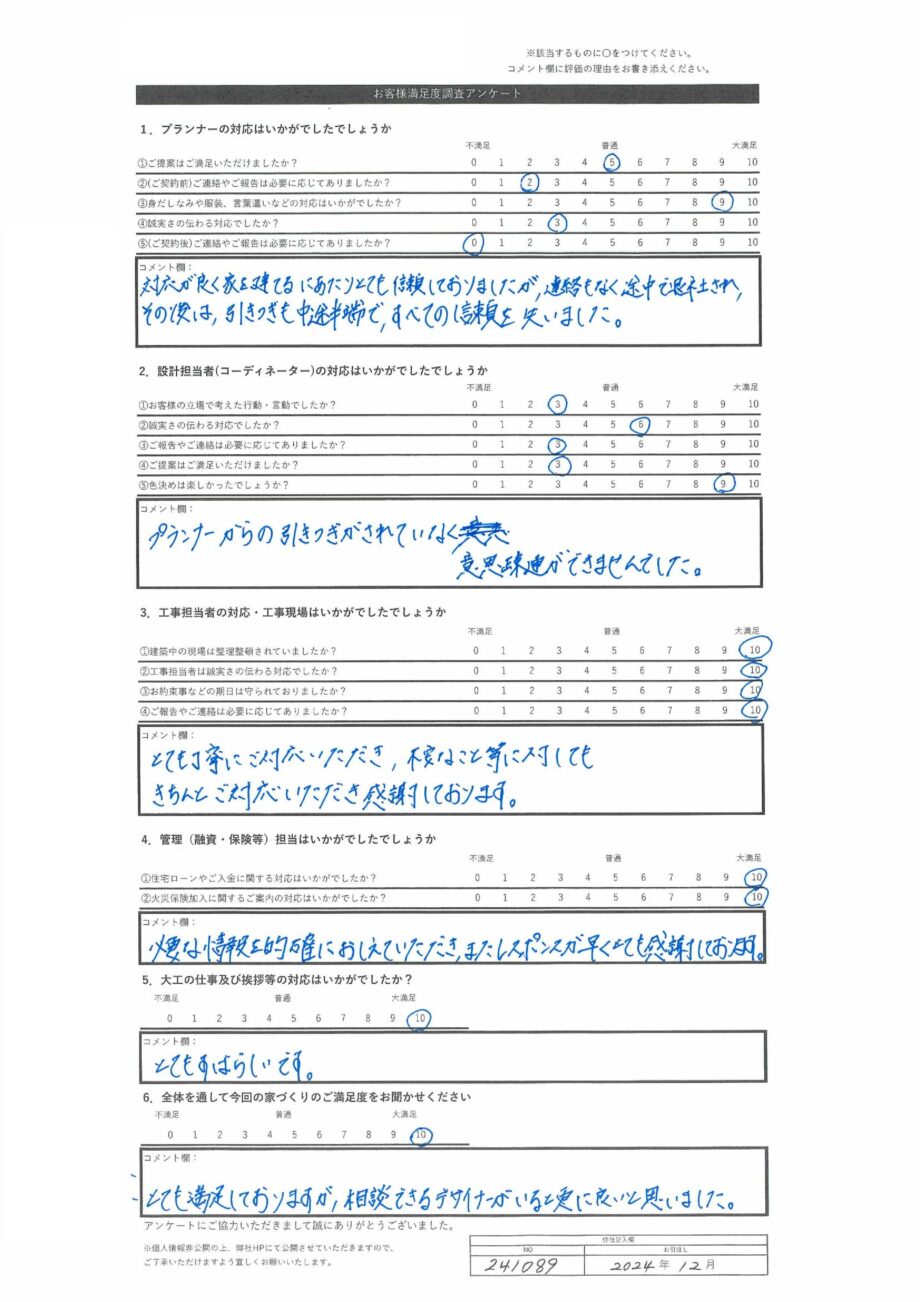 ※該当するものに〇をつけてください。
コメント欄に評価の理由をお書き添えください。
お客様満足度調査アンケート
1．プランナーの対応はいかがでしたでしょうか
不満足 普通 大満足
①ご提案はご満足いただけましたか？ 0 1 2 3 4 5 6 7 8 9 10
②(ご契約前)ご連絡やご報告は必要に応じてありましたか？ 0 1 2 3 4 5 6 7 8 9 10
③身だしなみや服装、言葉遣いなどの対応はいかがでしたか？ 0 1 2 3 4 5 6 7 8 9 10
④誠実さの伝わる対応でしたか？ 0 1 2 3 4 5 6 7 8 9 10
⑤(ご契約後)ご連絡やご報告は必要に応じてありましたか？ 0 1 2 3 4 5 6 7 8 9 10
コメント欄：
対応が良く家を建てるにあたりとても信頼しておりましたが、連絡もなく途中で退社され、
その後は、引きつぎも中途半端で、すべての信頼を失いました。
2．設計担当者(コーディネーター)の対応はいかがでしたでしょうか
不満足 普通 大満足
①お客様の立場で考えた行動・言動でしたか？ 0 1 2 3 4 5 6 7 8 9 10
②誠実さの伝わる対応でしたか？ 0 1 2 3 4 5 6 7 8 9 10
③ご報告やご連絡は必要に応じてありましたか？ 0 1 2 3 4 5 6 7 8 9 10
④ご提案はご満足いただけましたか？ 0 1 2 3 4 5 6 7 8 9 10
⑤色決めは楽しかったでしょうか？ 0 1 2 3 4 5 6 7 8 9 10
コメント欄：
プランナーからの引きつぎがされていなく
意思疎通ができませんでした。
3．工事担当者の対応・工事現場はいかがでしたでしょうか
不満足 普通 大満足
①建築中の現場は整理整頓されていましたか？ 0 1 2 3 4 5 6 7 8 9 10
②工事担当者は誠実さの伝わる対応でしたか？ 0 1 2 3 4 5 6 7 8 9 10
③お約束事などの期日は守られておりましたか？ 0 1 2 3 4 5 6 7 8 9 10
④ご報告やご連絡は必要に応じてありましたか？ 0 1 2 3 4 5 6 7 8 9 10
コメント欄：
とても丁寧にご対応いただき、不安なこと等に対しても
きちんとご対応いただき感謝しております。
4．管理（融資・保険等）担当はいかがでしたでしょうか
不満足 普通 大満足
①住宅ローンやご入金に関する対応はいかがでしたか？ 0 1 2 3 4 5 6 7 8 9 10
②火災保険加入に関するご案内の対応はいかがでしたか？ 0 1 2 3 4 5 6 7 8 9 10
コメント欄：
必要な情報を的確におしえていただき、またレスポンスが早くとても感謝しております。
5．大工の仕事及び挨拶等の対応はいかがでしたか？
不満足 普通 大満足
0 1 2 3 4 5 6 7 8 9 10
コメント欄：
とてもすばらしいです。
6．全体を通して今回の家づくりのご満足度をお聞かせください
不満足 普通 大満足
0 1 2 3 4 5 6 7 8 9 10
コメント欄：
とても満足しておりますが、相談できるデザイナーがいると更に良いと思いました。
アンケートにご協力いただきまして誠にありがとうございました。
※個人情報非公開の上、弊社HPにて公開させていただきますので、
ご了承いただけますよう宜しくお願いいたします。
弊社記入欄
NO お引渡し
241089 2024年12月